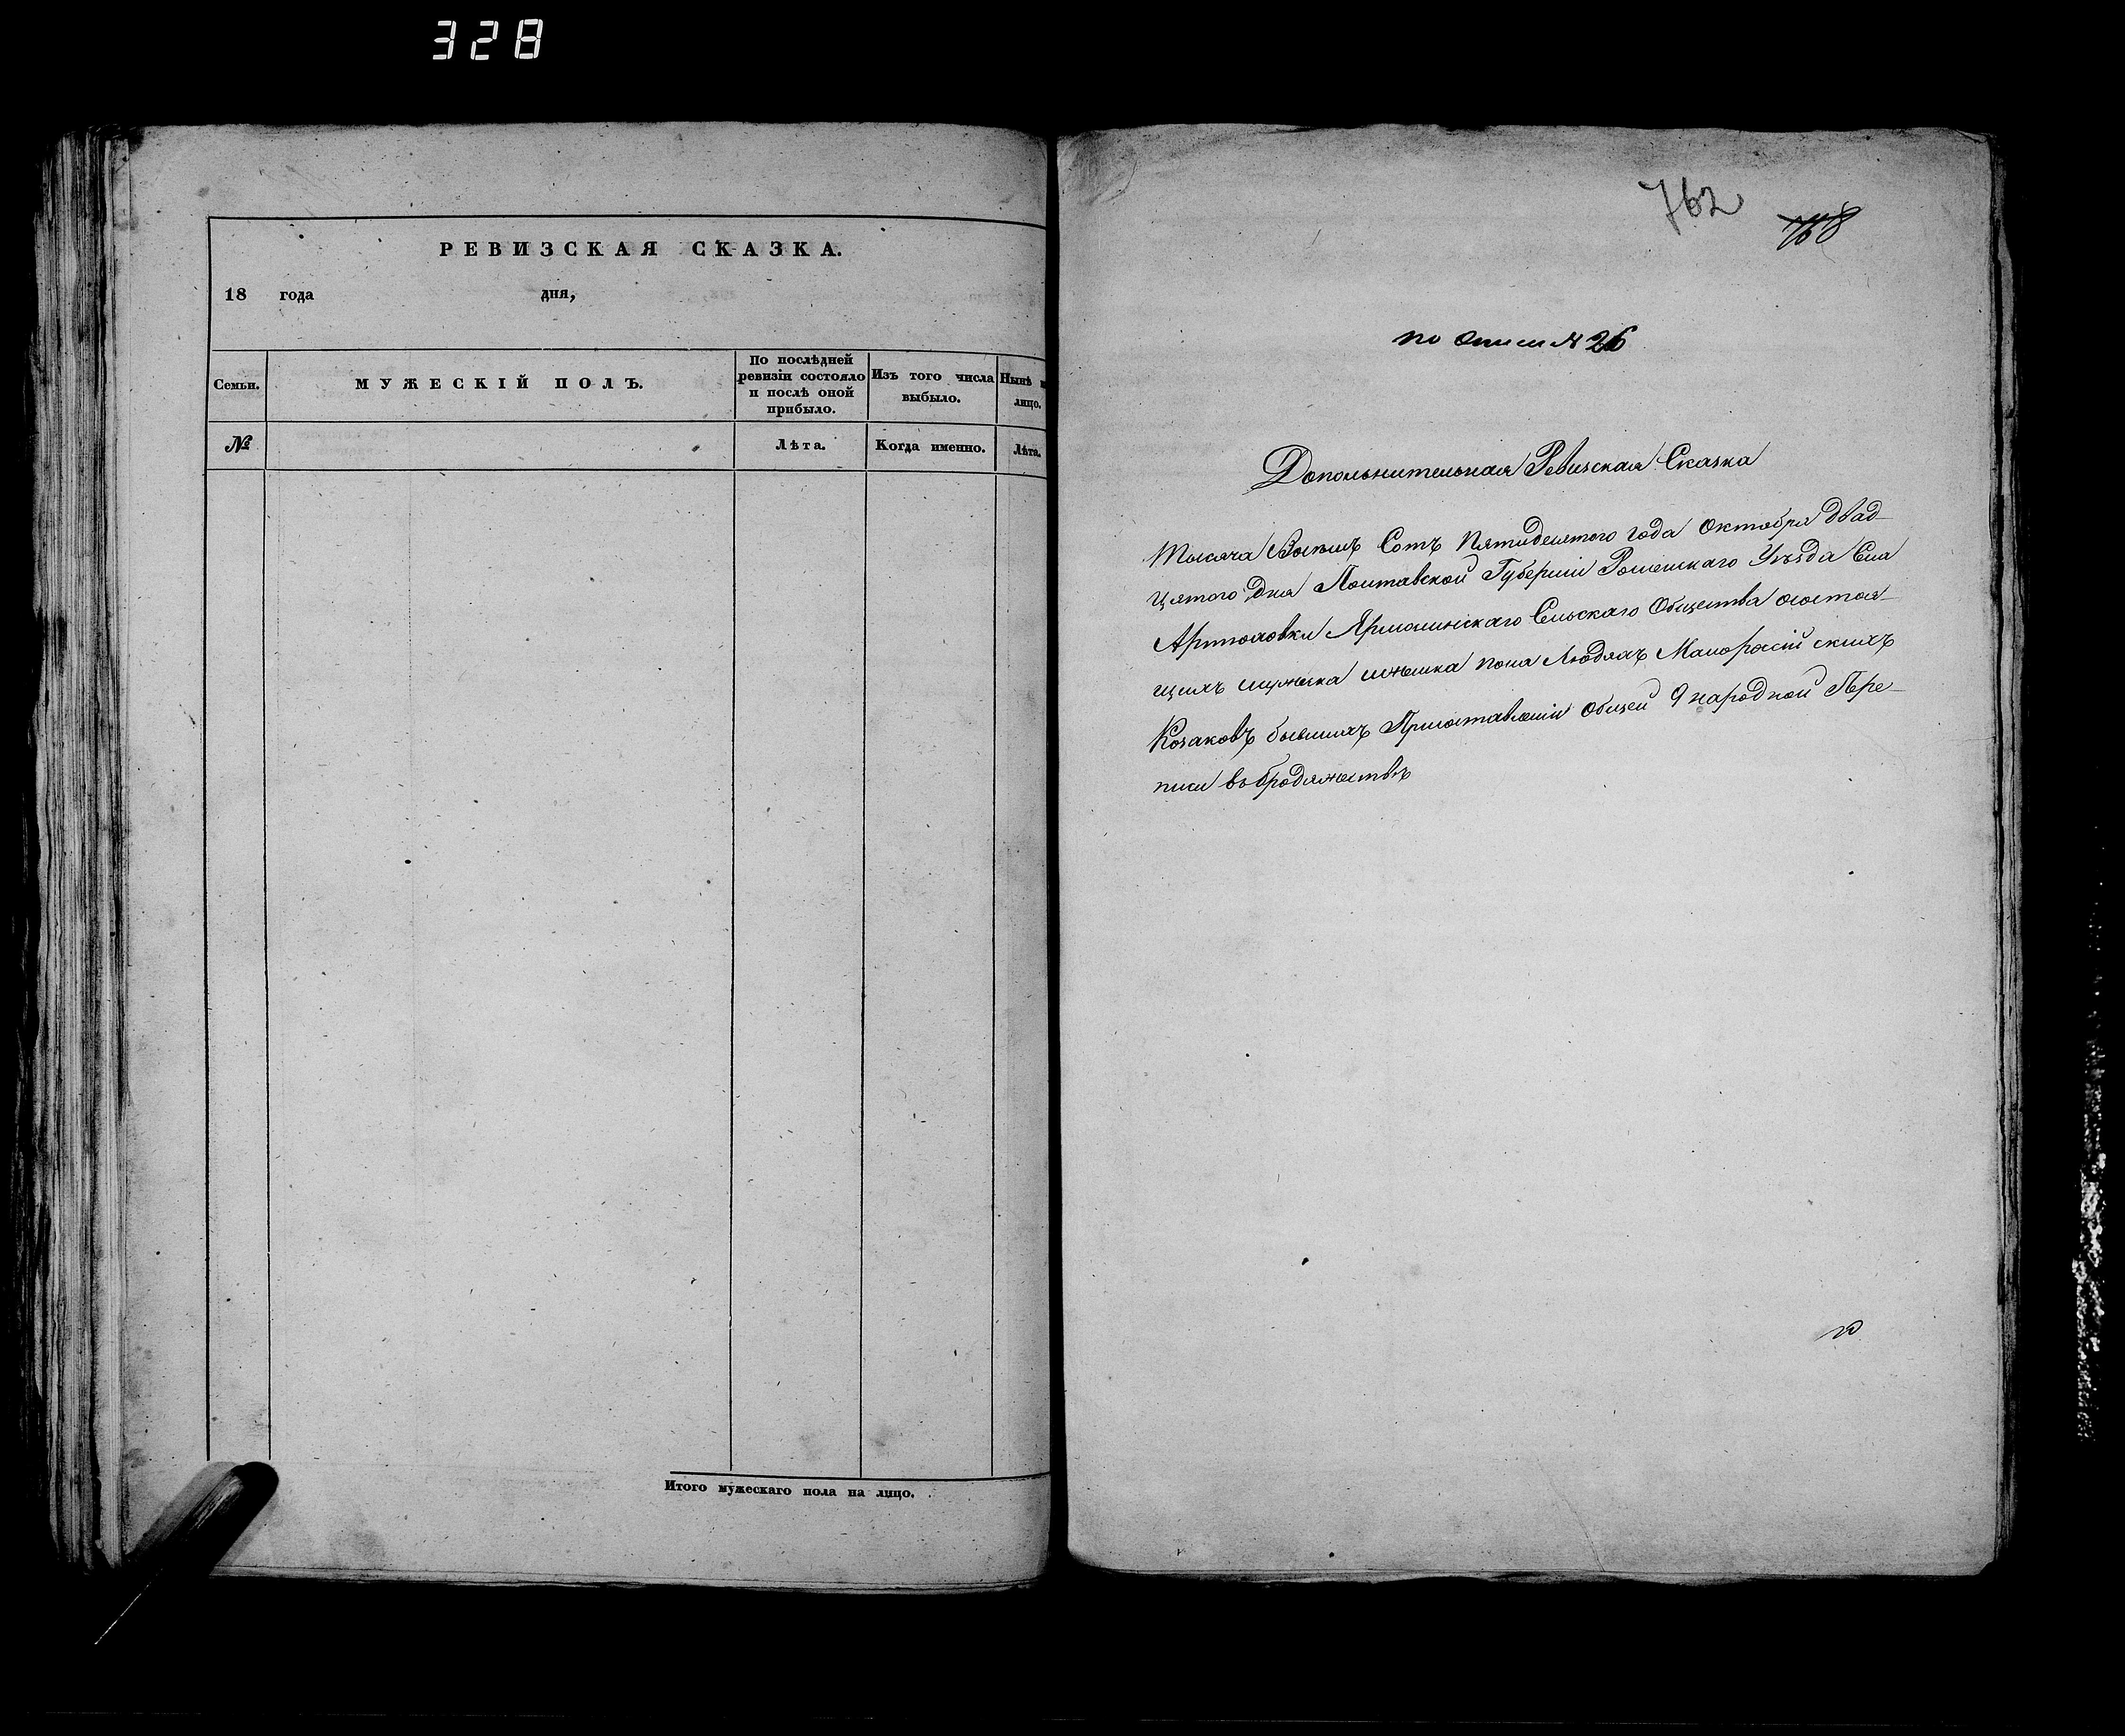 328
РЕВИЗСКАЯ СКАЗКА.
18 года дня,
Семьи.
МУЖЕСКІЙ ПОЛЪ.
По послѣдней ревизіи состояло и послѣ оной прибыло.
Изъ того числа выбыло.
Нынѣ н лицо.
№
Лѣта.
Когда именно.
Лѣта.
Итого мужескаго пола на лицо.
762
768
по описи № 26
Дополнительная Ревизская Сказка
Тысяча Восемь Сотъ Пятидесятого года Октября двад-
цятого дня Полтавской Губерніи Роменскаго Уѣзда Села
Артполовки Ярмолинскаго Сельскаго Общества состоя-
щихъ мужеска иженска пола Людяхъ Малоросій скихъ
Козаковъ бывшихъ Присоставленіи общей 9 народной Пере-
писи вь бродяжествѣ